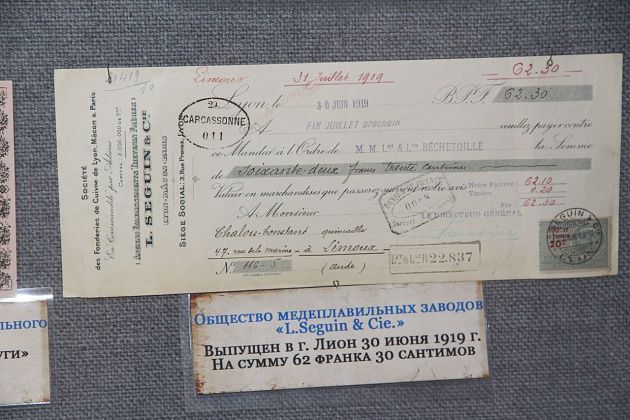 Limoux
31 Juillet 1919
62.30
Lyon, le 30 JUIN 1919
B.P.F. 62.30
CARCASSONNE
011
A FIN JUILLET prochain veuillez payer contre
ce Mandat à l'Ordre de M.M. Les & Les RÉCHETOILLE la Somme
de Soixante-deux francs trente centimes
Valeur en marchandises que passerez suivant notre avis
Notre Facture : 62.10
Timbre : 0.20
Frs : 62.30
LE DIRECTEUR GÉNÉRAL
A Monsieur
Chalou-Constant quincaillier
47, rue de la marine - à Limoux
(Aude)
N° 116-5
22.837
SOCIÉTÉ
des Fonderies de Cuivre de Lyon, Mâcon & Paris
En Commandite par Actions
L. SEGUIN & Cie
LYON-MACON-PARIS
SIÈGE SOCIAL: 3, Rue Pravaz, LYON
SEGUIN &
LYON
Общество медеплавильных заводов
«L.Seguin & Cie.»
Выпущен в г. Лион 30 июня 1919 г.
На сумму 62 франка 30 сантимов
льного
уги»